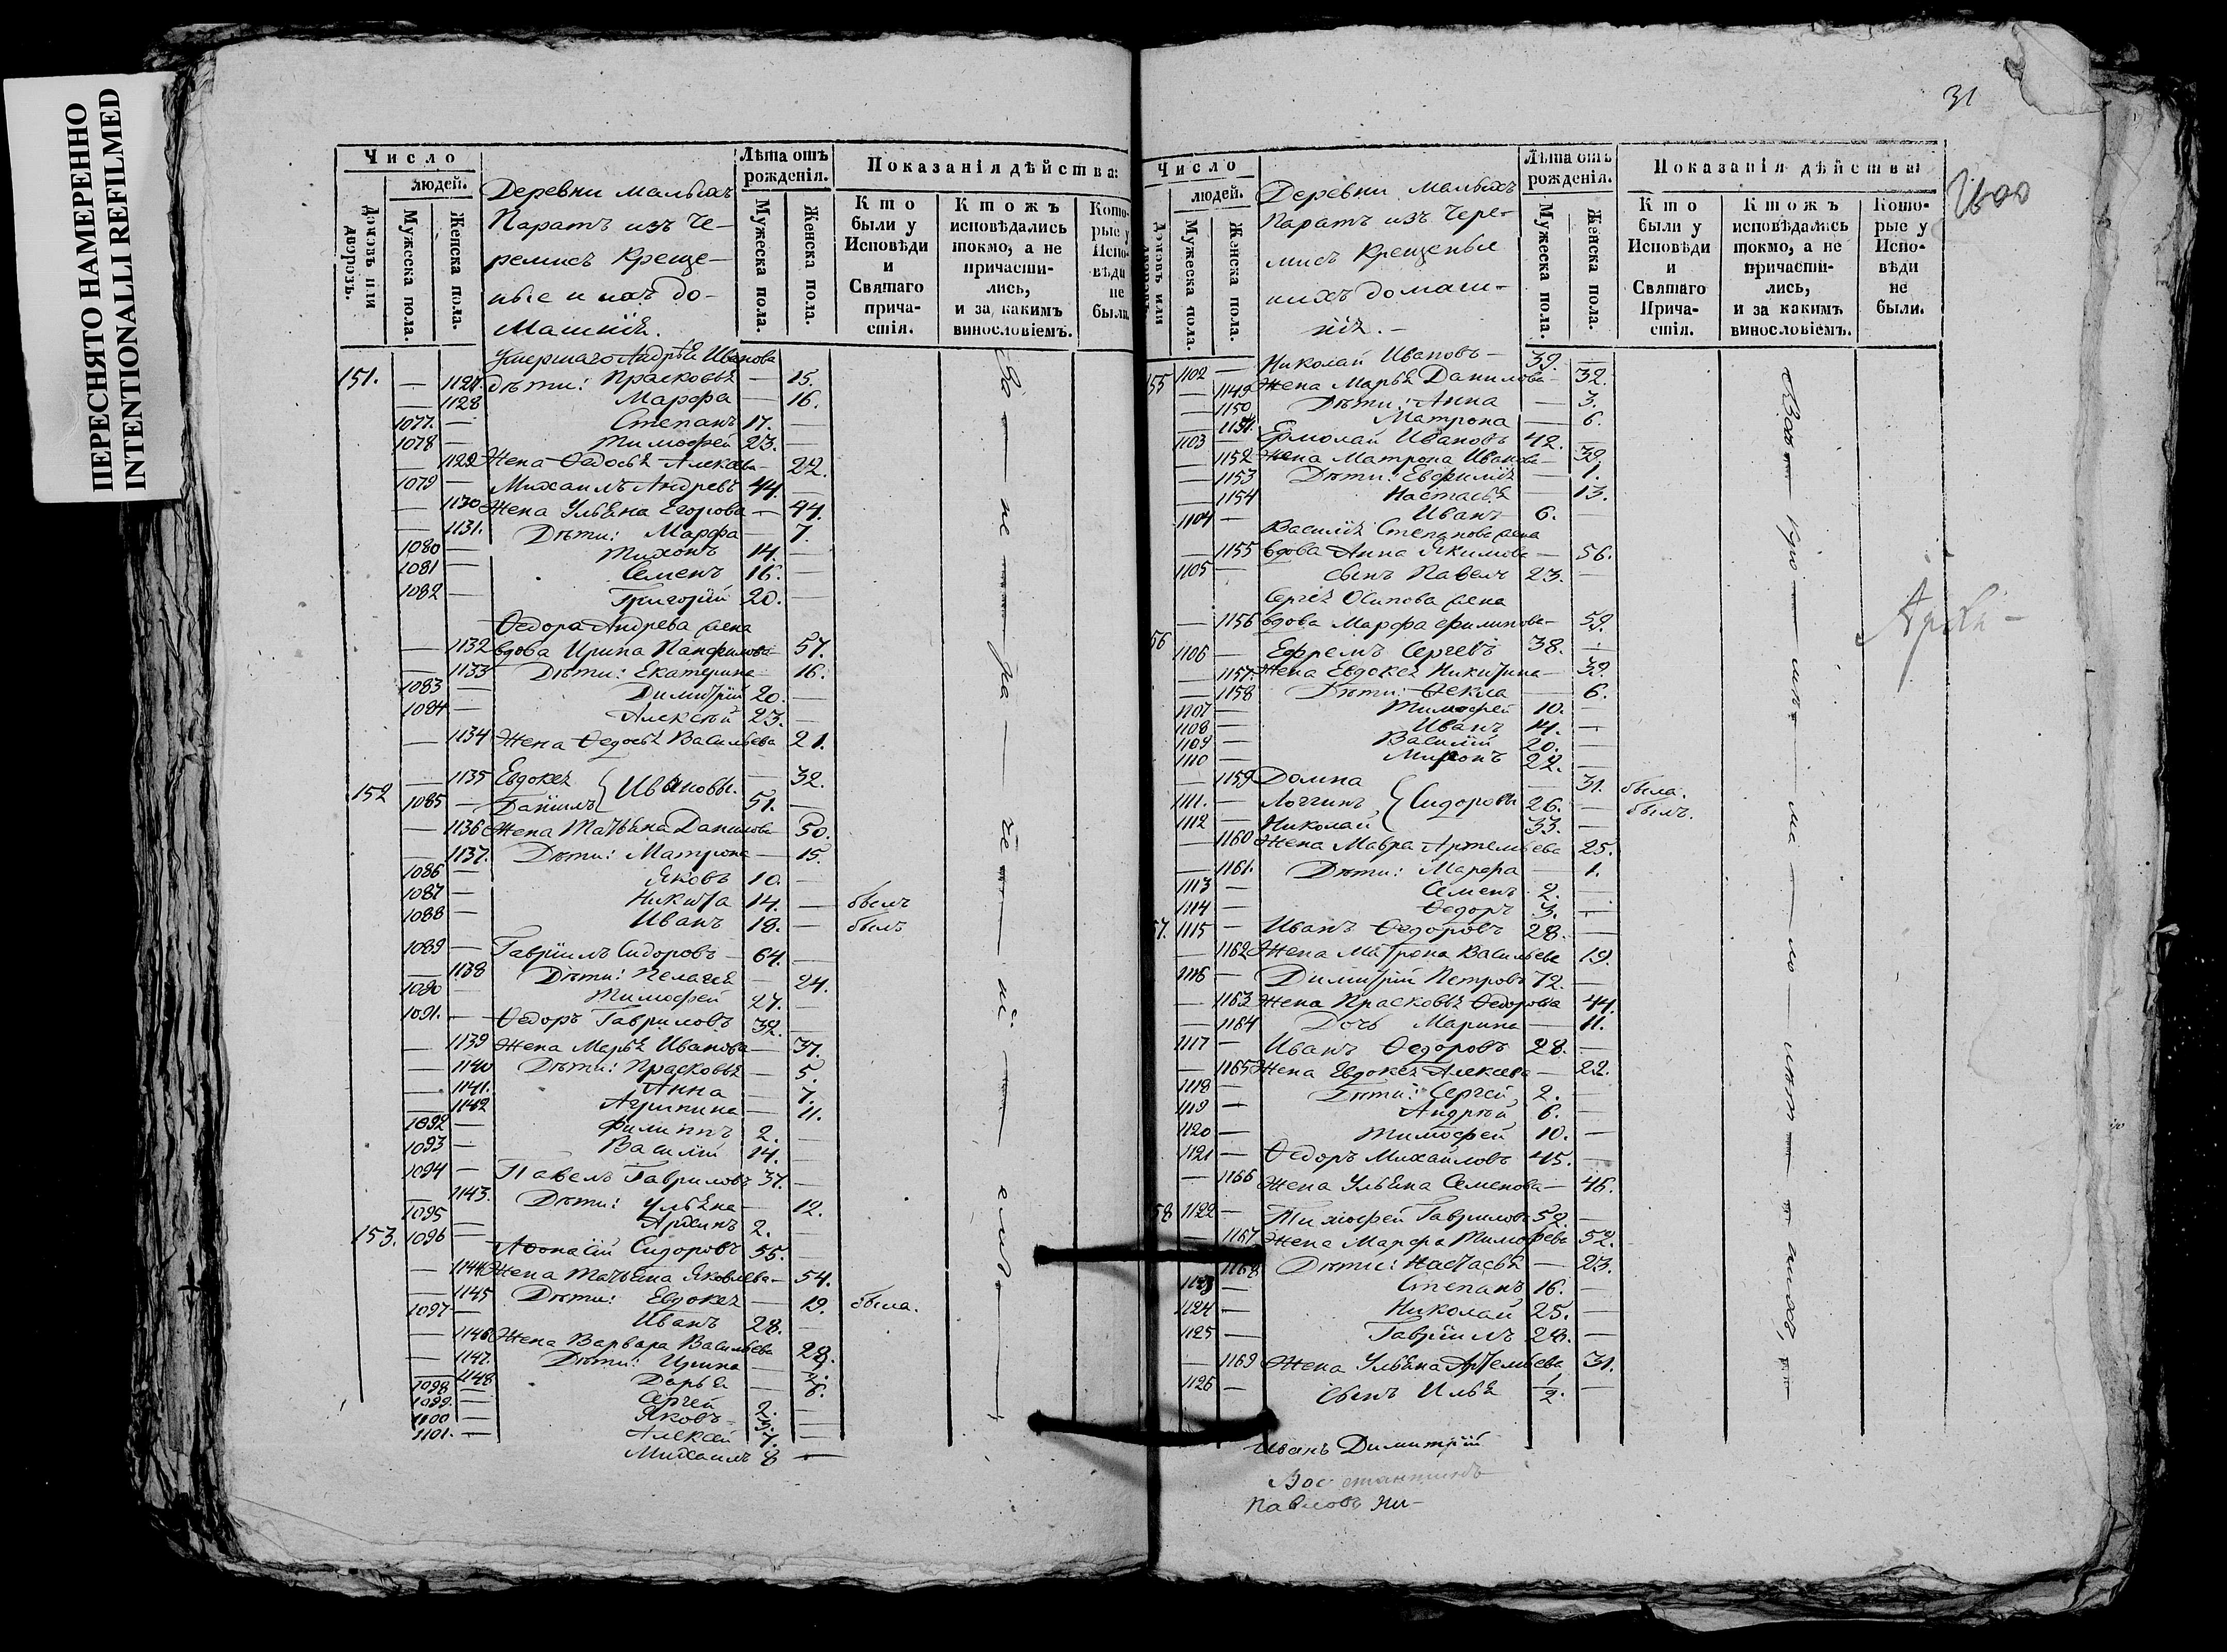 ПЕРЕСНЯТО НАМЕРЕННО
INTENTIONALLI REFILMED
31
Число
людей.
Домовъ или дворовъ.
Мужеска пола.
Женска пола.
Деревни Малыхъ
Паратъ изъ Че-
ремисъ Креще-
ные и ихъ до-
машнiе.
Лѣта отъ рожденiя.
Мужеска пола.
Женска пола.
Показанiя дѣйства:
Кто были у Исповѣди и Святаго причастiя.
Ктожъ исповѣдались токмо, а не причастились, и за какимъ винословiемъ.
Которые у Исповѣди не были.
Умершаго Андрѣя Иванова
151. — 1127. дѣти: Прасковья — 15.
— 1128 Марфа — 16.
1077. — Степанъ 17. —
1078 — Тимофей 23. —
— 1129 Жена Ѳедосья Алексѣева — 22.
1079 — Михаилъ Андревъ 44. —
— 1130 Жена Ульяна Егорова — 44.
— 1131. Дѣти: Марфа — 7.
1080 — Тихонъ 14. —
1081 — Семенъ 16. —
1082 — Григорiй 20. —
Ѳедора Андрева жена
— 1132 вдова Ирина Панфилова — 57.
— 1133 Дѣти: Екатерина — 16.
1083 — Димитрiй 20. —
1084 — Алексѣй 23. —
— 1134 Жена Ѳедосья Васильева 21.
— 1135 Евдокея — 32.
Ивановы.
152 1085 — Данiилъ 51. —
— 1136 Жена Татьяна Данилова 50.
— 1137. Дѣти: Матрона — 15.
1086 — Яковъ 10. —
1087 — Никита 14. — былъ
1088 — Иванъ 18. — былъ
1089 — Гаврiилъ Сидоровъ — 64. —
— 1138 Дѣти: Пелагея — 24.
1090 — Тимофей 27. —
1091. — Ѳедоръ Гавриловъ 39. —
— 1139 Жена Марья Иванова — 37.
— 1140 Дѣти: Прасковья — 5.
— 1141. Анна — 7.
— 1142 Агрипина — 11.
1092 — Филиппъ 2. —
1093 — Василiй 14. —
1094 — Павелъ Гавриловъ 37. —
— 1143. Дѣти: Ульяна — 12.
1095 — Архипъ 2. —
153. 1096 — Аѳонасiй Сидоровъ 55. —
— 1144 Жена Татьяна Яковлева — 54.
— 1145 Дѣти: Евдокея — 19. была.
1097 — Иванъ 28. —
— 1146 Жена Варвара Васильева 28.
— 1147. Дѣти: Ирина —
— 1148 Дарья — 6.
1098 — Сергей 2. —
1099. — Яковъ —
1100 — Алексѣй 7. —
1101. — Михаилъ 8 —
За не ра че нi емъ
Число
людей.
Домовъ или дворовъ.
Мужеска пола.
Женска пола.
Деревни Малыхъ
Паратъ изъ Чере-
мисъ Крещеные
ихъ домаш-
нiе. —
Лѣта отъ рожденiя.
Мужеска пола.
Женска пола.
Показанiя дѣйствы
Кто были у Исповѣди и Святаго Причастiя.
Ктожъ исповѣдались токмо, а не причастились, и за какимъ винословiемъ.
Которые у Исповѣди не были.
55 1102 — Николай Ивановъ — 39. —
— 1149 Жена Марья Данилова — 32.
— 1150 Дѣти: Анна — 3.
— 1151. Матрона — 6.
1103 — Ермолай Ивановъ 42. —
— 1152 Жена Матрона Иванова — 39.
— 1153 Дѣти: Евфимiя — 1.
— 1154 Настасья — 13.
1104 — Иванъ 6. —
Василiя Степанова жена
— 1155 вдова Анна Якимова — 56.
1105 — сынъ Павелъ 23. —
Сергея Осипова жена
— 1156 вдова Марфа Филипова — 59.
56 1106 — Ефремъ Сергевъ 38. —
— 1157. Жена Евдокея Никитина — 39.
— 1158 Дѣти: Ѳекла — 6.
1107 — Тимофей 10. —
1108 — Иванъ 14. —
1109 — Василiй 20. —
1110 — Миронъ 22. —
— 1159 Домна — 31. была.
1111. — Логгинъ Сидоровы 26. — былъ.
1112 — Николай 33. —
— 1160 Жена Мавра Артемьева 25.
— 1161. Дѣти: Марфа — 1.
1113 — Семенъ 2. —
1114 — Ѳедоръ 3. —
57. 1115 — Иванъ Ѳедоровъ 28. —
— 1162 Жена Матрона Васильева 19.
1116 — Димитрiй Петровъ 72. —
— 1163 Жена Прасковья Ѳедорова 44.
— 1164 Дочь Марина — 11.
1117 — Иванъ Ѳедоровъ 28. —
— 1165 Жена Евдокея Алексѣева — 22.
1118 — Дѣти: Сергей 2. —
1119 — Андрѣй 6. —
1120 — Тимофей 10. —
1121 — Ѳедоръ Михайловъ 45. —
— 1166 Жена Ульяна Семенова — 46.
58 1122 — Тимофей Гавриловъ 52. —
— 1167 Жена Марфа Тимофева 52.
— 1168 Дѣти: Настасья — 23.
1123 — Степанъ 16. —
1124 — Николай 25. —
1125 — Гаврiилъ 28. —
— 1169 Жена Ульяна Артемьева 31.
1126 — сынъ Илья 1/2. —
Иванъ Димитрiй
Павловъ